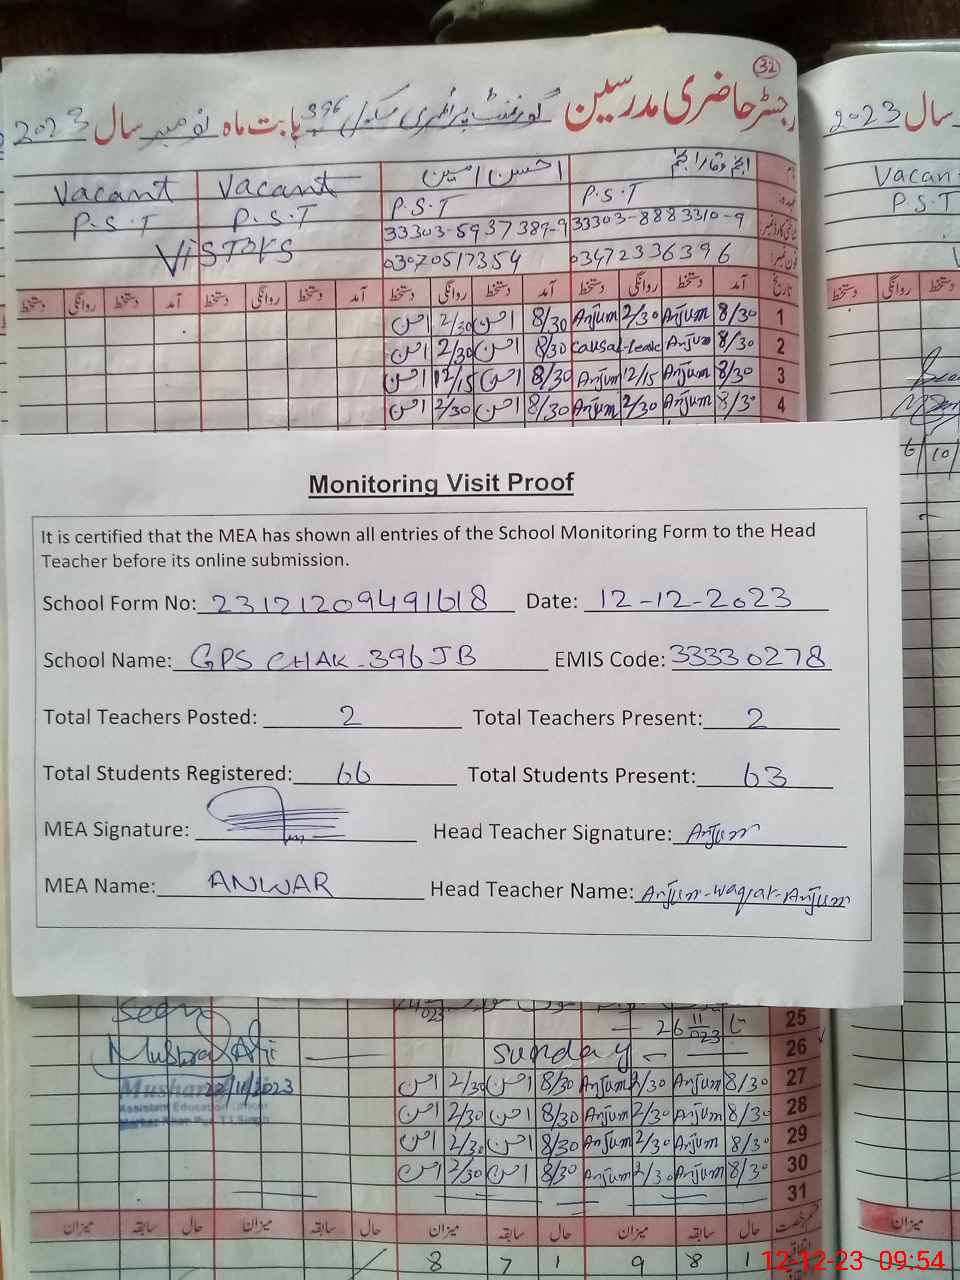 32
رجسٹر حاضری مدرسین گورنمنٹ پرائمری سکول 396 بابت ماہ نومبر سال 2023
سال 2023
Vacant Vacant احسن امین انجم وقار انجم
P.S.T P.S.T P.S.T P.S.T
VISTORS 33303-5937389-9 33303-8883310-9
03070517354 03472336396
دستخط روانگی دستخط آمد دستخط روانگی دستخط آمد دستخط روانگی دستخط آمد دستخط روانگی دستخط آمد تاریخ
2/30 8/30 Anjum 2/30 Anjum 8/30 1
2/30 8/30 causal-leave Anjum 8/30 2
12/15 8/30 Anjum 12/15 Anjum 8/30 3
2/30 8/30 Anjum 2/30 Anjum 8/30 4
Monitoring Visit Proof
It is certified that the MEA has shown all entries of the School Monitoring Form to the Head
Teacher before its online submission.
School Form No: 23121209491618 Date: 12-12-2023
School Name: GPS CHAK-396JB EMIS Code: 33330278
Total Teachers Posted: 2 Total Teachers Present: 2
Total Students Registered: 66 Total Students Present: 63
MEA Signature: Head Teacher Signature: Anjum
MEA Name: ANWAR Head Teacher Name: Anjum-Waqar-Anjum
25
Seen
sunday 26
22/11/2023
2/30 8/30 Anjum 2/30 Anjum 8/30 27
Assistant Education Officer
2/30 8/30 Anjum 2/30 Anjum 8/30 28
2/30 8/30 Anjum 2/30 Anjum 8/30 29
2/30 8/30 Anjum 2/30 Anjum 8/30 30
31
میزان سابقہ حال میزان سابقہ حال میزان سابقہ حال میزان سابقہ حال
8 7 1 9 8 1
12-12-23 09:54